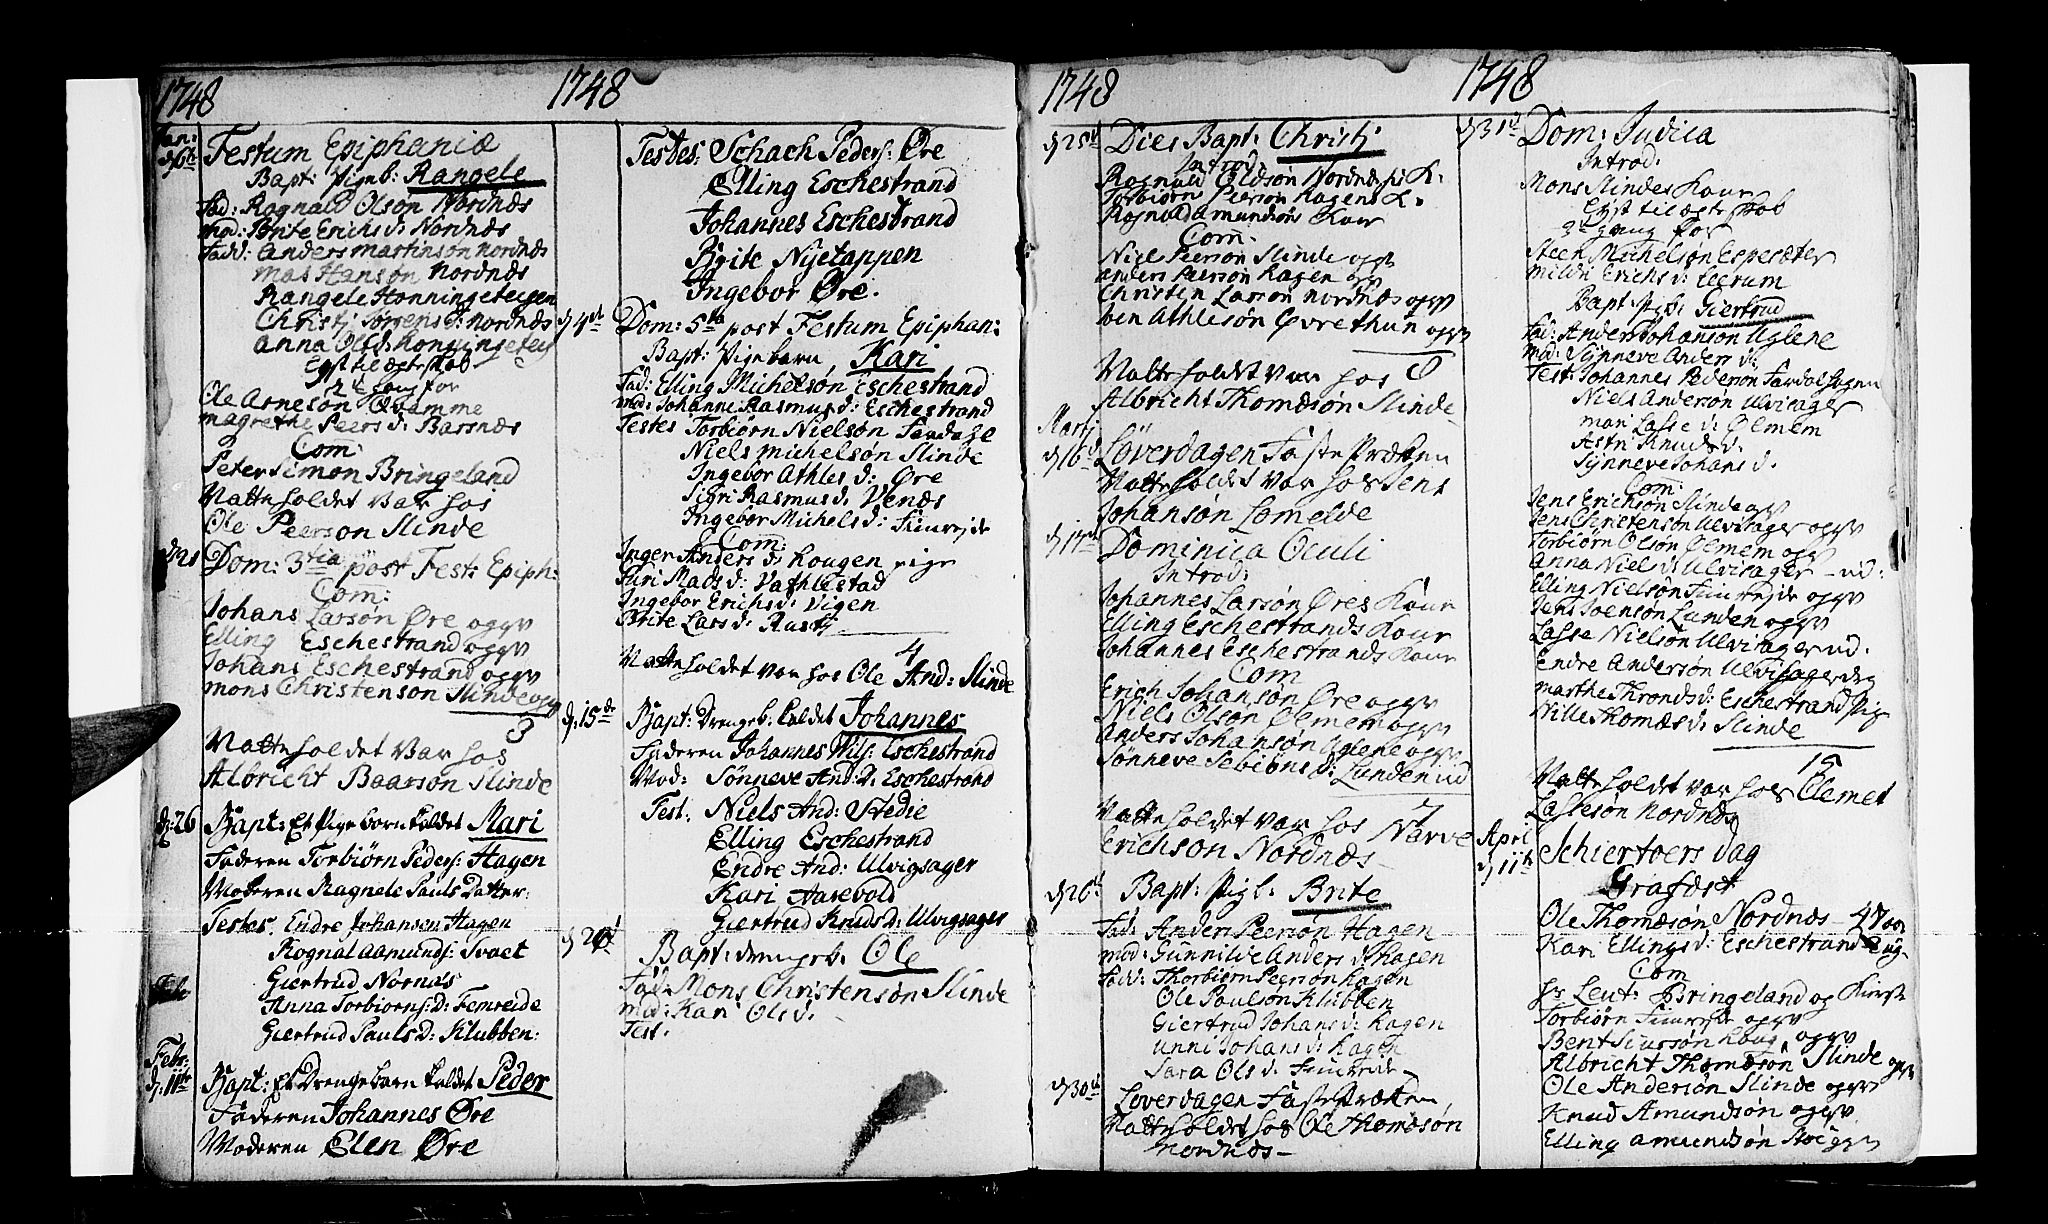 1748
1748
Jan:
d 6te
Festum Epiphaniæ
Bapt: Pigeb: Rangele
Fad: Rognald Olsøn Nordnæs
Mod: Brite Erichs d: Nordnæs
Fadd: Anders Martinsøn Nordnæs
Mas Hansøn Nordnæs
Rangele Honningeteigen
Christj Jørgens d: Nordnæs
Anna Ols d:
Egteskab
2d gang for
Ole Arnesøn Qvamme
Magrethe Peers d: Barsnæs
Com:
Peter Simon Bringeland
Natteholdet var hos
Ole Peersøn Slinde
d 21
Dom: 3tia post Fest: Epiph:
Com:
Johans Larsøn Øre og qv
Elling Eschestrand og qv
Johans Eschestrand og qv
Mons Christensøn Slinde og qv
3
Natteholdet var hos
Albricht Baarsøn Slinde
d: 26
Bapt: Et Pigeborn kaldet Mari
Faderen Torbiørn Peders: Hagen
Moderen Ragnele Pauls Datter:
Testes. Endre Johansen Hagen
Rognal Aamunds: Tvæt
Giertrud Nornæs
Anna Torbiorns: D: Femreide
Giertrud Pauls D: Klubben:
Febr:
d: 11te
Bapt: Et Drengebarn kaldet Peder
Faderen Johannes Øre
Moderen Elen Øre
Testes: Schach Peders: Øre
Elling Eschestrand
Johannes Eschestrand
Brite Nyetappen
Ingebor Øre.
d 4de
Dom: 5ta post Festum Epiphan:
Bapt: Pigebarn Kari
Fad: Elling Michelsøn Eschestrand
Mod: Johanne Rasmus d: Eschestrand
Testes Torbiørn Nielsøn Fardahl
Niels Michelsøn Slinde
Ingebor Athles d: Øre
Sigri Rasmus d: Venæs
Ingebor Michels d: Fimreide
Com:
Inger Anders d: Hougen pige
Guri Mads d: Vathlestad
Ingebor Erichs d: Vigen
Brite Lars d: Rustj
4
Natteholdet var hos Ole And: Slinde
d. 15de
Bapt: Drengeb: kaldet Johannes
Faderen Johannes Nils: Eschestrand
Mod: Sønneve And: D: Eschestrand
Test. Niels And: Stedie
Elling Eschestrand
Endre And: Ulvigsager
Kari Aarevold
Giertrud Knuds D: Ulvigsager
Bapt: drengeb: Ole
Fad: Mons Christensøn Slinde
Mod: Kari Ols d:
Test.
1748
1748
d 25d
Dies Bapt: Christi
Introd:
Rognald Oldsøn Nordnæsis K.
Torbiørn Peersøn Hagens K.
Rognald Amundsøns Kaar
Com:
Niel Peersøn Slinde og qv
Anders Peersøn Hagen og
Christen Larsøn Nordnæs og qv
Iven Athlesøn Øvrethun og qv
Natteholdet var hos
Albricht Thomæsøn Slinde
Martj
d 16d
Løverdagen FastePræken
Natteholdet var hos Jens
Johansøn Lomelde
d 17de
Dominica Oculi
Introd:
Johannes Larsøn Øres Kaar
Elling Eschestrands Kaar
Johannes Eschestrands Kaar
Com
Erich Johansøn Øre og qv
Niels Olsøn Ølmem og qv
Anders Johansøn Uglene og qv
Sønneve Sebiøns d: Lunden ud
7
Natteholdet var hos Narve
Erichsøn Nordnæs
d 26d
Bapt: Pigb: Brite
Fad: Anders Peersøn Hagen
Mod: Gunnilde Anders d: Hagen
Fadd: Thorbiørn Peersøn Hagen
Ole Paulsøn Klubben
Giertrud Johans d: Hagen
Unni Johans d: Hagen
Sara Ols d: Fimreide
d 30d
Løverdagen FastePræken
Natteholdet hos Ole Thomæsøn
Nordnæs
d 31d
Dom: Judica
Introd:
Mons Slindes Kaar
Lyst til Egteskab
3de gang for
Steen Michelsøn Espesæter
Mildri Erichs d: Eerum
Bapt: Pigb: Giertrud
Fad: Anders Johansøn Uglene
Mod: Synneve Anders d:
Test: Johannes Pedersøn Fardal Hagen
Niels Andersøn Ulvisager
Mari Lasse d: Ølmem
Astri Knuds d:
Synneve Johans d.
Com:
Jens Erichsøn Slinde og qv
Jens Christensøn Ulvisager og qv
Torbiørn Olsøn Ølmem og qv
Anna Niels d: Ulvisager ud:
Elling Nielsøn Fimreide og qv
Jens Joensøn Lunden og qv
Lasse Nielsøn Ulvisager ud.
Endre Andersøn Ulvisager drg
Marthe Thronds d: Eschestrand pig
Nille Thomæs d: Slinde
15
Natteholdet var hos Clemet
Lassesøn Nordnæs
April
d 11te
Schiertoersdag
Grafæst
Ole Thomæsøn Nordnæs 47
Kari Ellings d: Eschestrand
Com
Hr Leut: Bringeland og Kierste
Torbiørn Fimreide og qv
Bent Siursøn Houg og qv
Albricht Thomæsøn Slinde og qv
Ole Andersøn Slinde og qv
Knud Amundsøn og qv
Elling Amundsøn